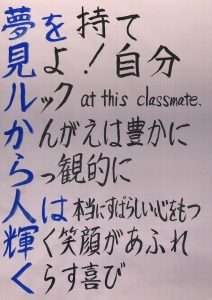 夢を持て
見よ！自分
ルック at this classmate.
かんがえは豊かに
らっ観的に
人は本当にすばらしい心をもつ
輝く笑顔があふれ
くらす喜び